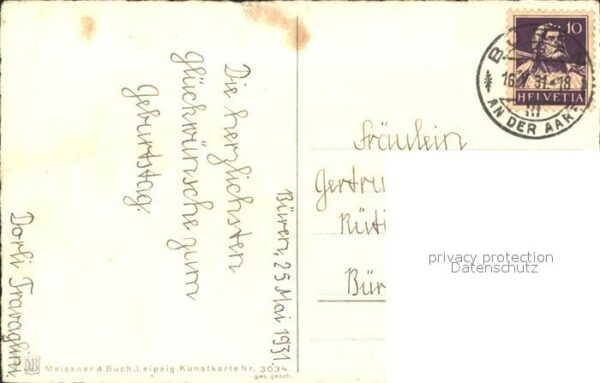 Die herzlichsten
Glückwünsche zum
Geburtstag.
Büren, 25 Mai 1931.
Dorli
Meissner & Buch, Leipzig. Kunstkarte Nr. 3034
ges. gesch.
10
HELVETIA
AN DER AARE
Fräulein
Gertru
Rüti
Bür
privacy protection
Datenschutz